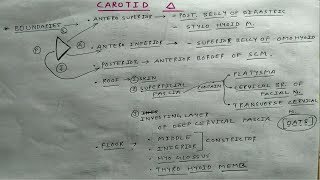 CAROTID △
* BOUNDARIES
① ANTERO SUPERIOR → POST. BELLY OF DIGASTRIC
→ STYLO HYOID M.
② ANTERO INFERIOR → SUPERIOR BELLY OF OMOHYOID
③ POSTERIOR → ANTERIOR BORDER OF SCM.
• ROOF → ① SKIN
② SUPERFICIAL FASCIA CONTAIN
→ PLATYSMA
→ CERVICAL BR. OF FACIAL N.
→ TRANSVERSE CERVICAL N.
③ INVESTING LAYER OF DEEP CERVICAL FASCIA
• FLOOR
• MIDDLE
• INFERIOR
CONSTRICTOR
• HYOGLOSSUS
• THYRO HYOID MEMB.